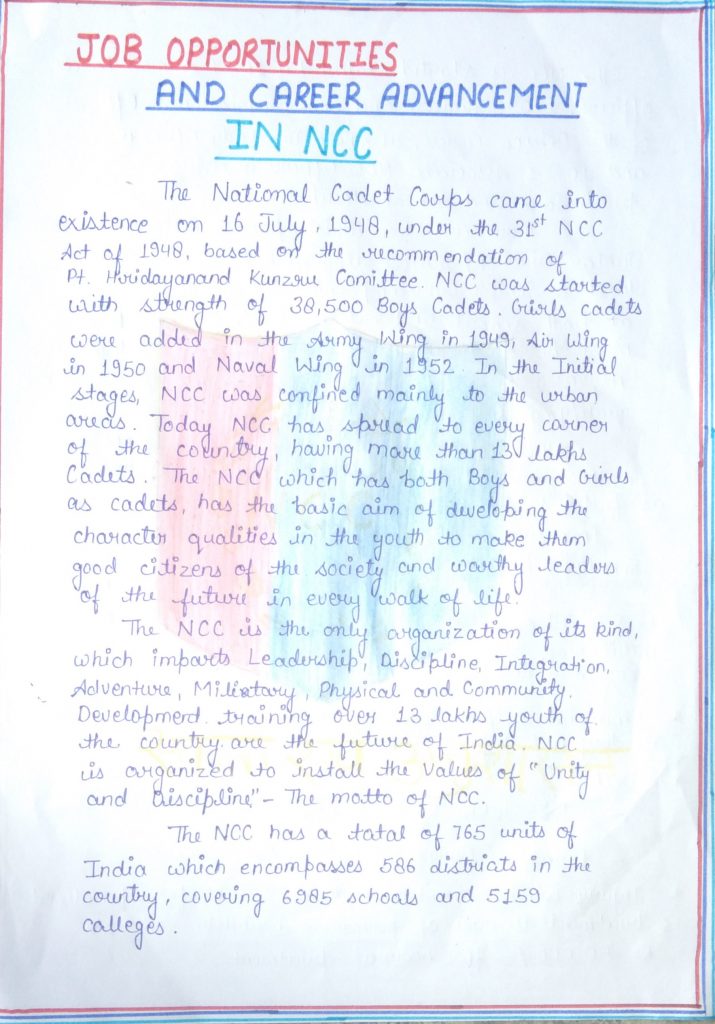 JOB OPPORTUNITIES
AND CAREER ADVANCEMENT
IN NCC
The National Cadet Corps came into
existence on 16 July, 1948, under the 31st NCC
Act of 1948, based on the recommendation of
Pt. Hridayanand Kunzru Comittee. NCC was started
with strength of 38,500 Boys Cadets. Girls cadets
were added in the Army Wing in 1949, Air Wing
in 1950 and Naval Wing in 1952. In the Initial
stages, NCC was confined mainly to the urban
areas. Today NCC has spread to every corner
of the country, having more than 13 lakhs
Cadets. The NCC which has both Boys and Girls
as cadets, has the basic aim of developing the
character qualities in the youth to make them
good citizens of the society and worthy leaders
of the future in every walk of life.
The NCC is the only organization of its kind,
which imparts Leadership, Discipline, Integration,
Adventure, Military, Physical and Community.
Development. training over 13 lakhs youth of.
the country. are the future of India. NCC
is organized to install the values of "Unity
and Discipline" - The motto of NCC.
The NCC has a total of 765 units of
India which encompasses 586 districts in the
country, covering 6985 schools and 5159
colleges.